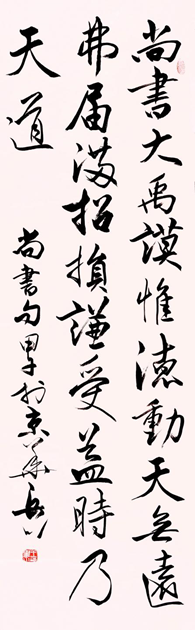 尚書大禹謨惟德動天無遠
弗届滿招損謙受益時乃
天道
尚書句甲子於京華